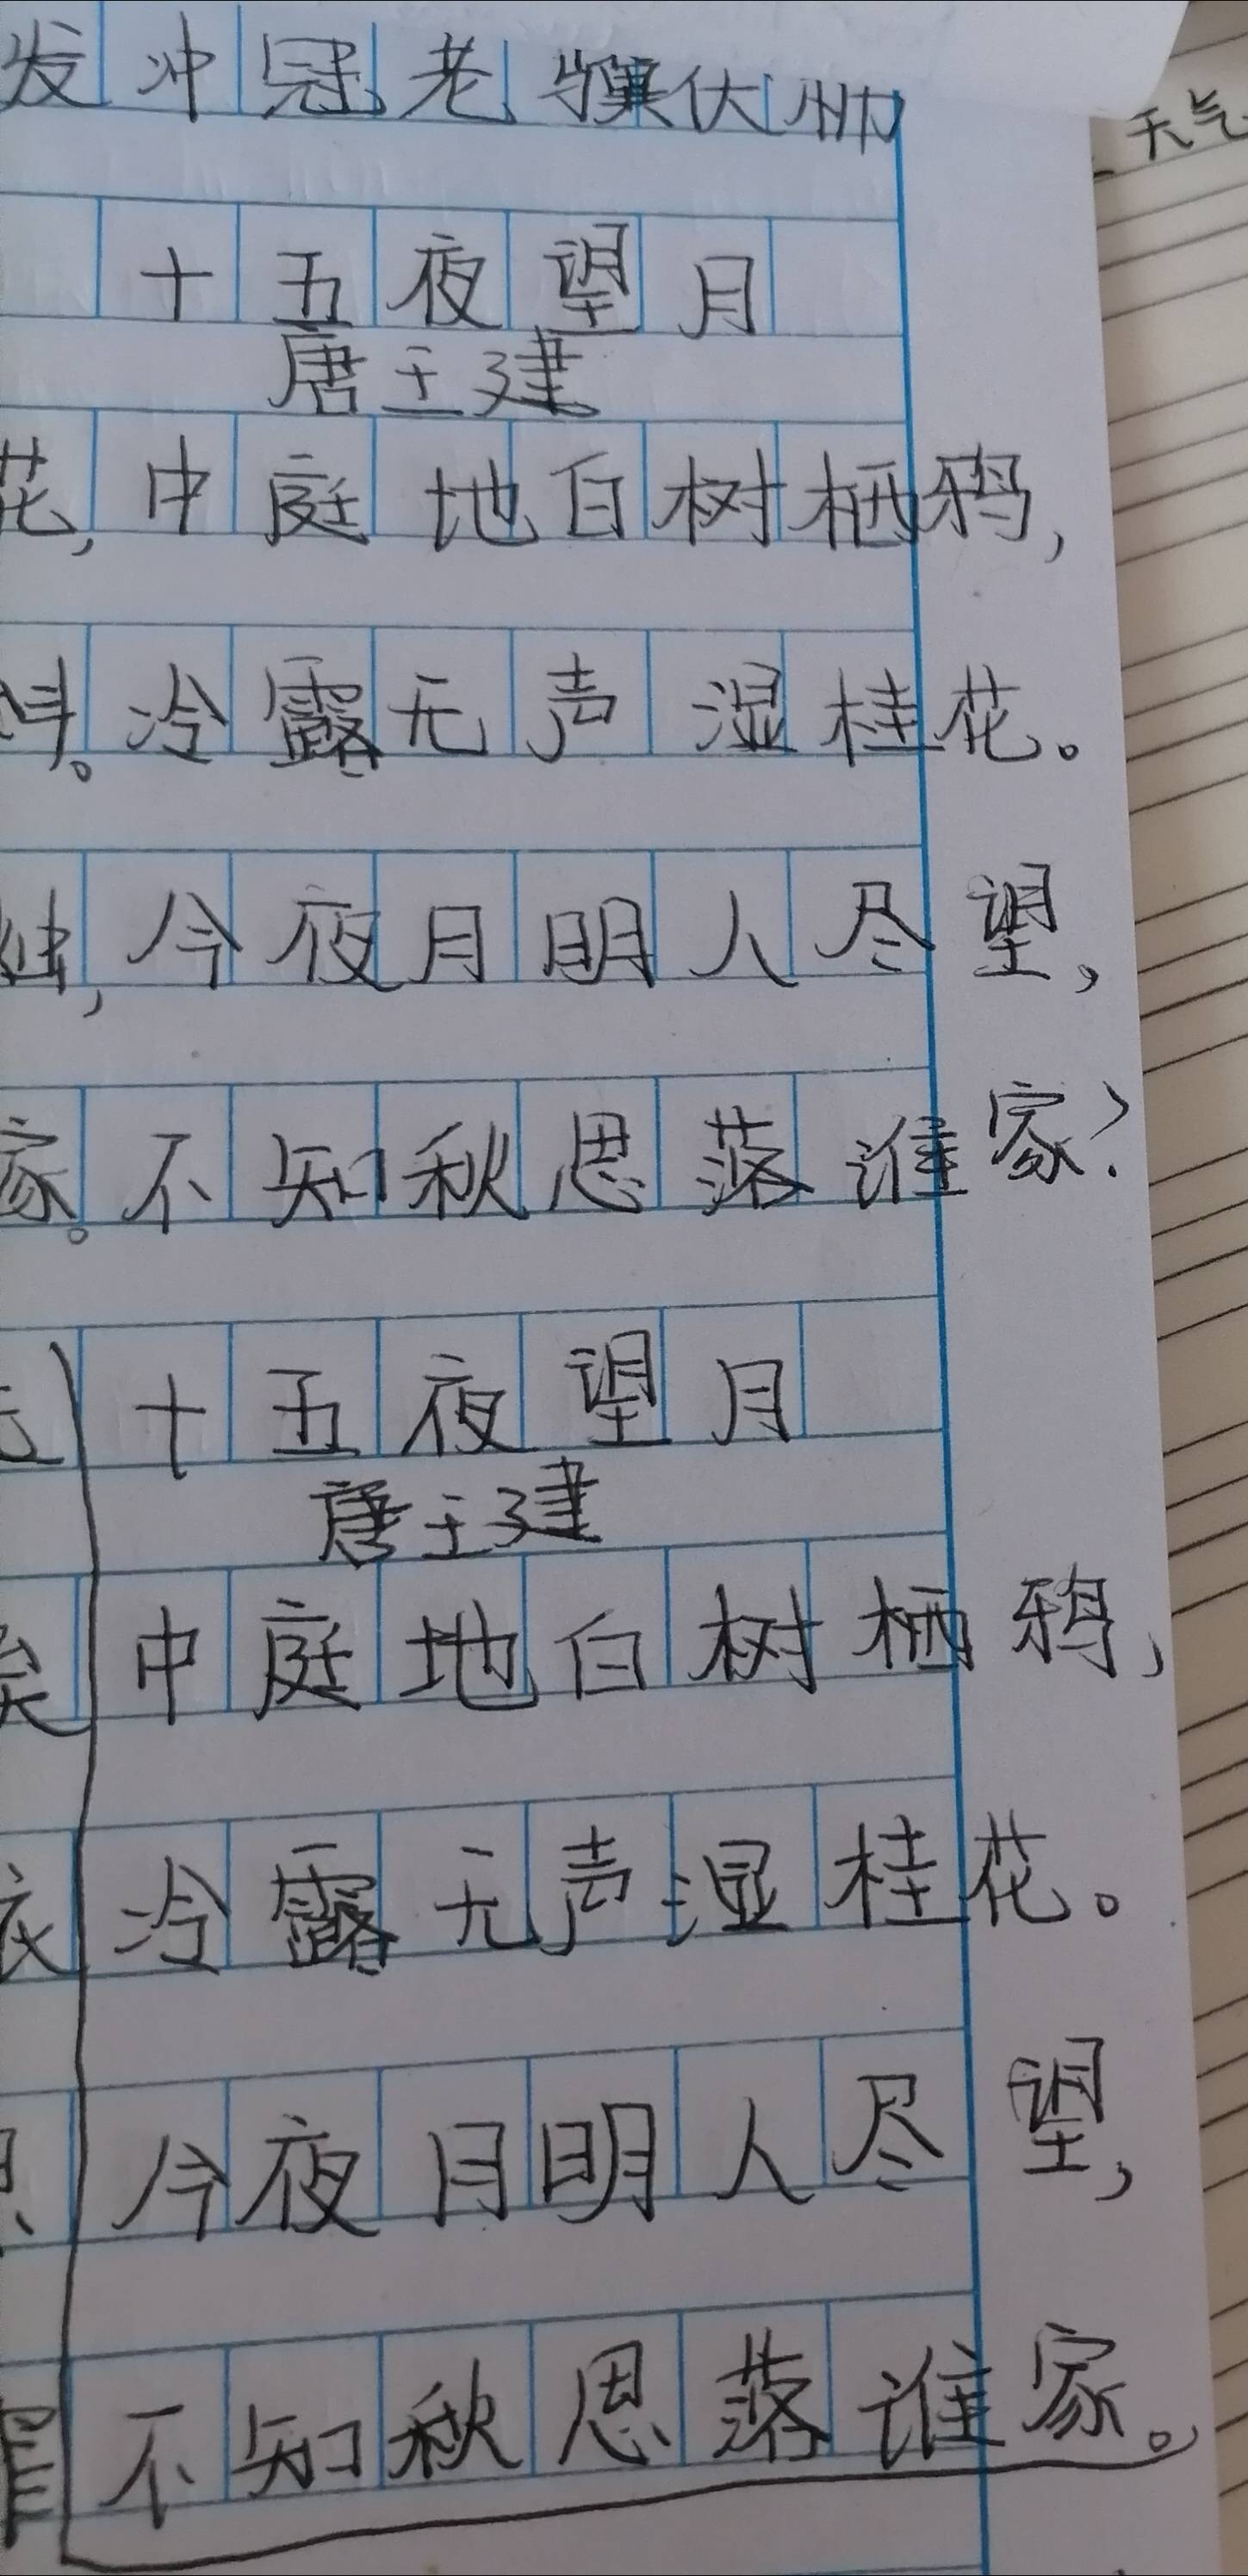 发冲冠老骥伏
天气
十五夜望月
唐王建
花,中庭地白树栖鸦,
冷露无声湿桂花。
今夜月明人尽望,
家。不知秋思落谁家?
十五夜望月
唐王建
中庭地白树栖鸦,
冷露无声湿桂花。
今夜月明人尽望,
不知秋思落谁家。